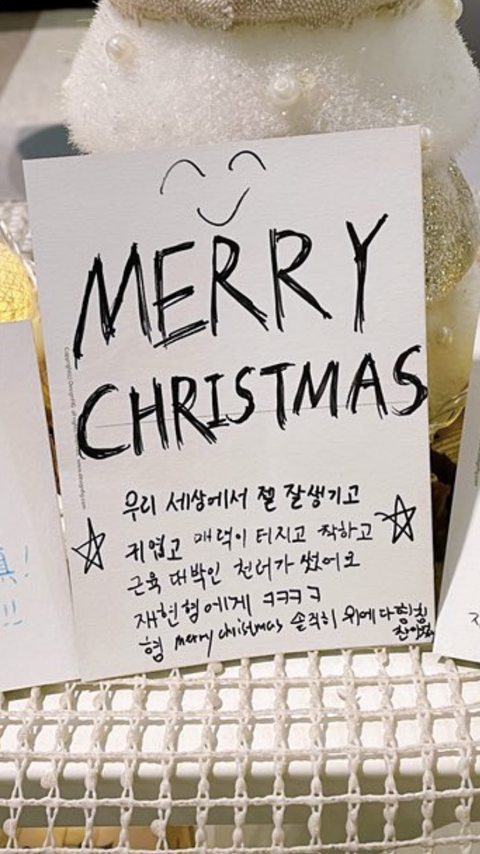 MERRY
CHRISTMAS
우리 세상에서 젤 잘생기고
귀엽고 매력이 터지고 착하고
근육 대박인 천러가 썼어요
재현형에게 ㅋㅋㅋㅋ
형 merry christmas 솔직히 위에 다